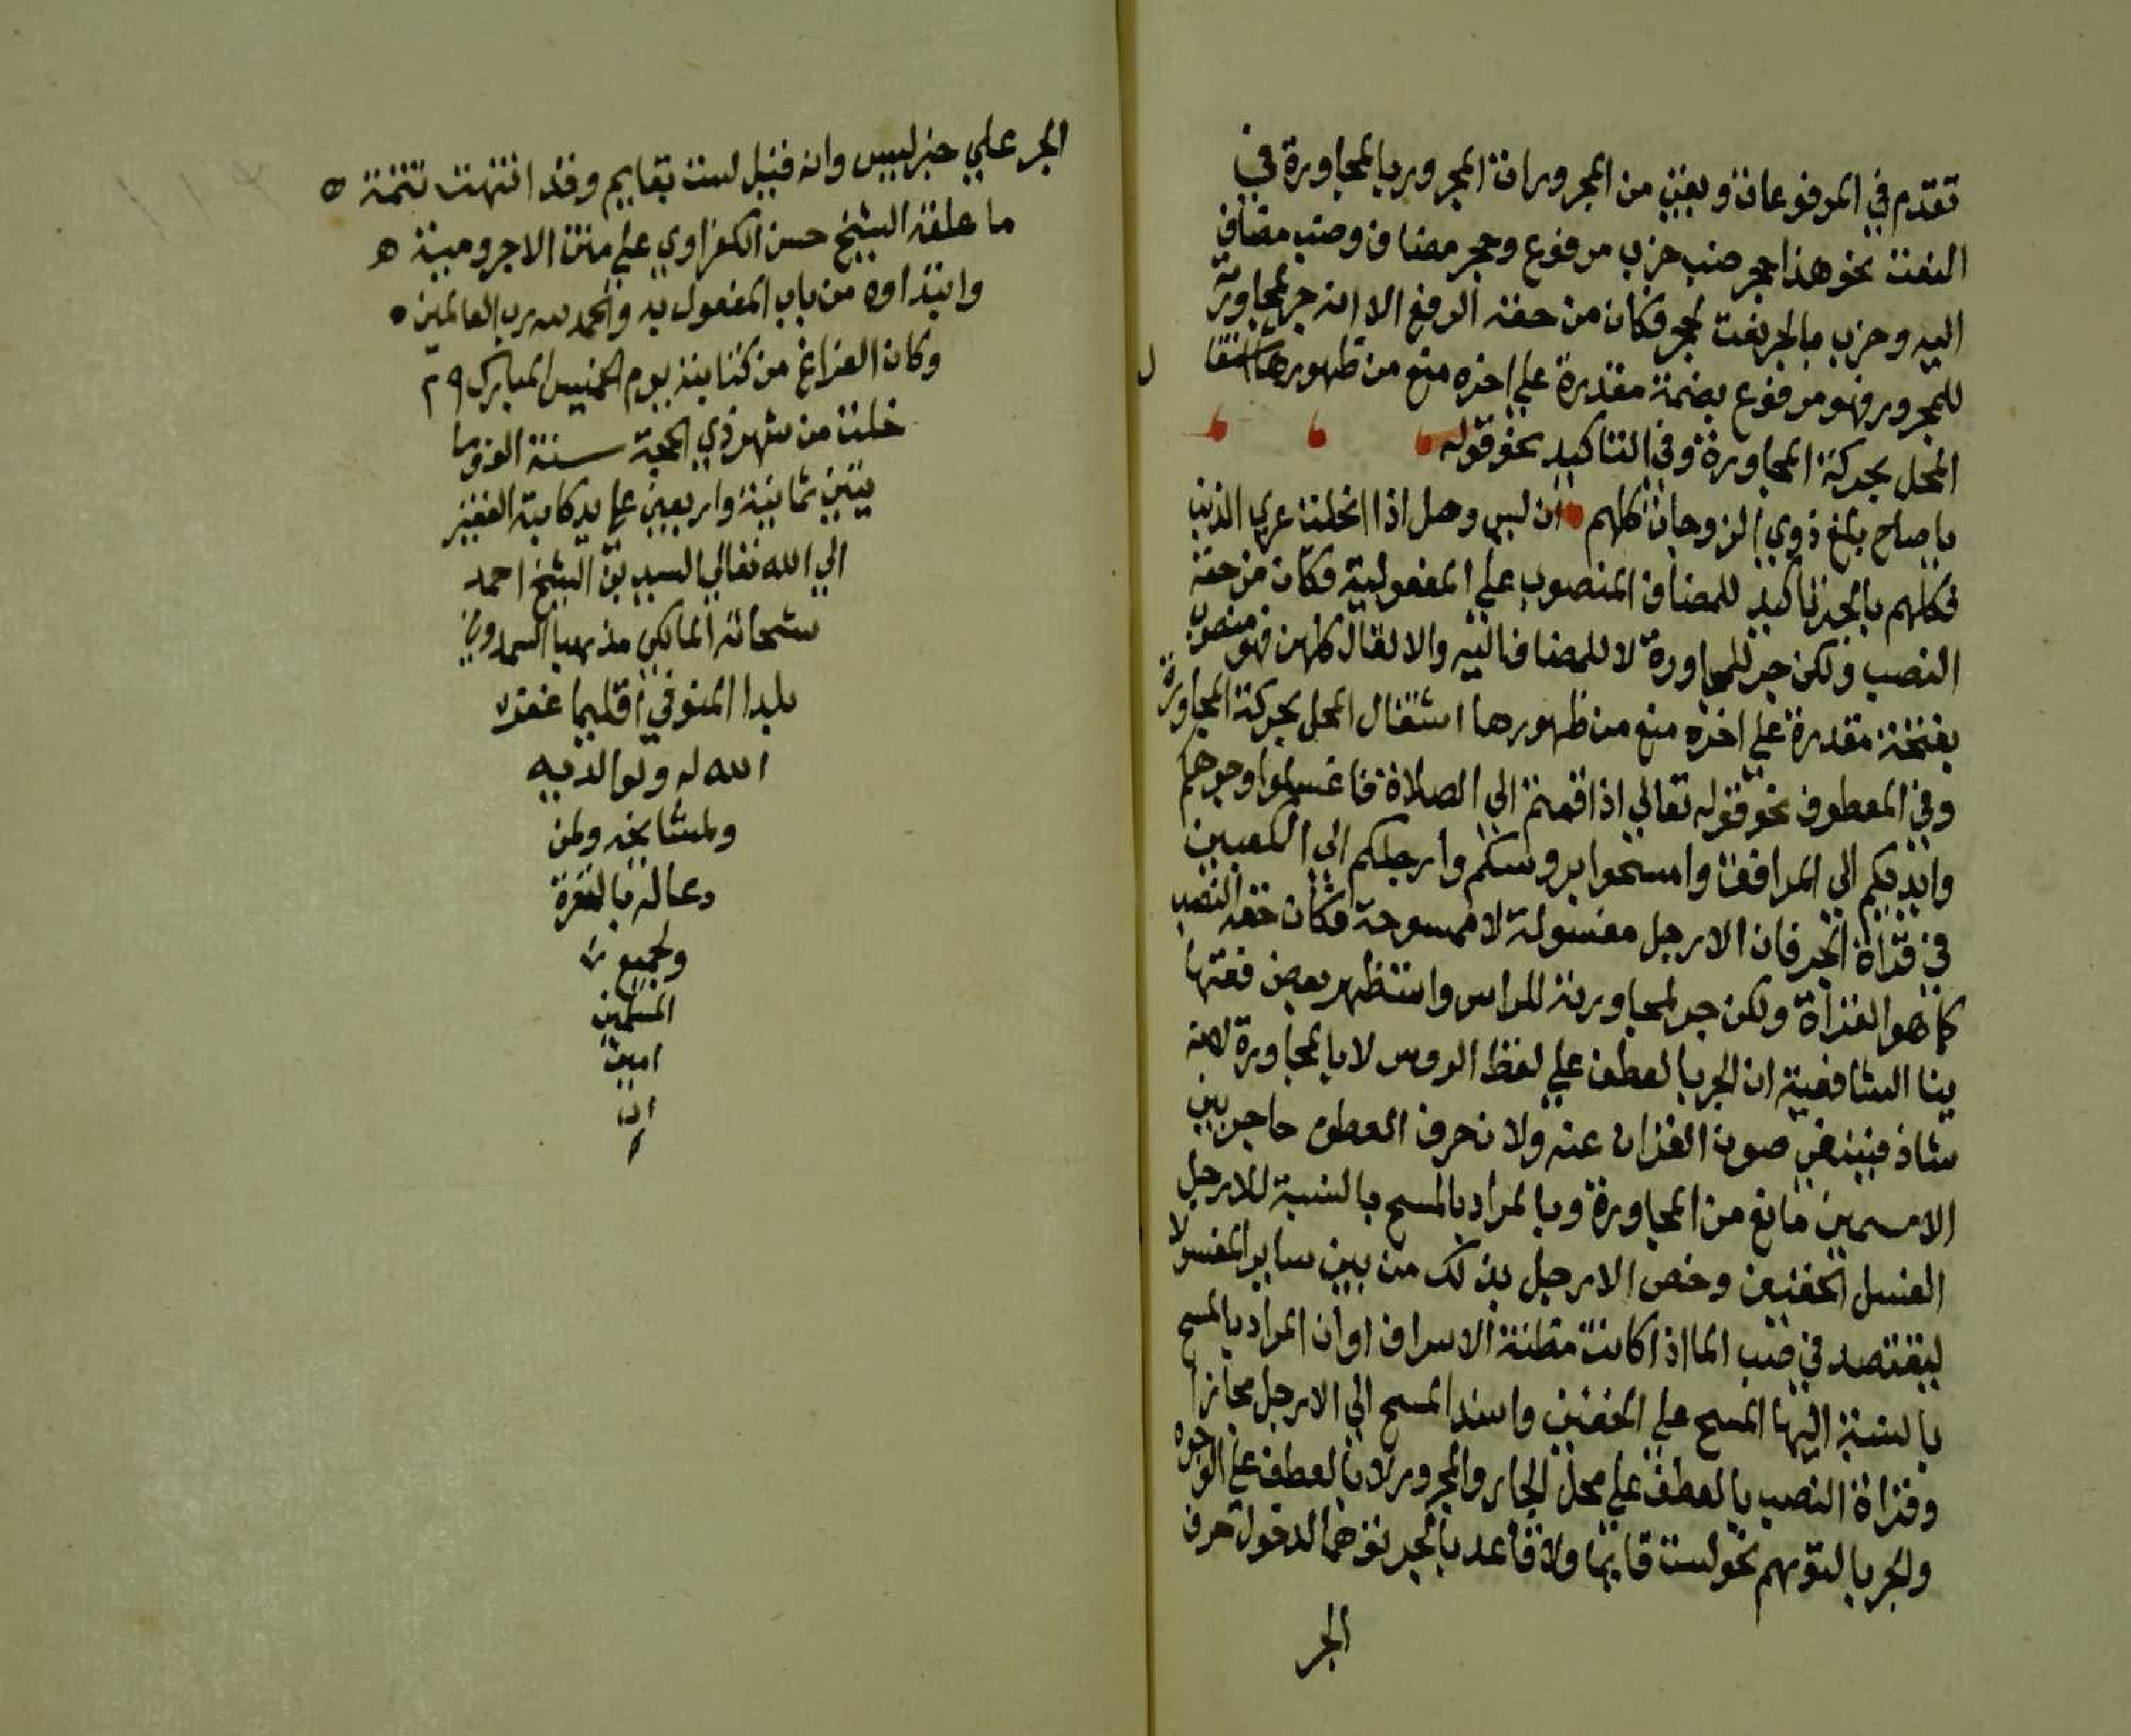 تقدم في المرفوعات وبقي من المجرورات المجرور بالمجاورة في
النعت نحو هذا جحر ضب خرب مرفوع وجحر مضاف وضب مضاف
اليه وخرب بالجر نعت لجحر فكان من حقه الرفع الا انه جر لمجاورته
للمجرور فهو مرفوع بضمة مقدرة علي اخره منع من ظهورها اشتغال
المحل بحركة المجاورة وفي التاكيد نحو قوله
يا صاح بلغ ذوي الزوجات كلهم ان ليس وصل اذا انحلت عري الذنب
فكلهم بالجر تاكيد للمضاف المنصوب علي المفعولية فكان من حقه
النصب ولكن جر للمجاورة لا للمضاف اليه والا لقال كلهن فهو منصوب
بفتحة مقدرة علي اخره منع من ظهورها اشتغال المحل بحركة المجاورة
وفي المعطوف نحو قوله تعالي اذا قمتم الي الصلاة فاغسلوا وجوهكم
وايديكم الي المرافق وامسحوا بروسكم وارجلكم الي الكعبين
في قراة الجر فان الارجل مغسولة لا ممسوحة فكان حقه النصب
كما هو القراة ولكن جر لمجاورته للراس واستظهر بعض فقها
ينا الشافعية ان الجر بالعطف علي لفظ الروس لا بالمجاورة لانه
شاذ فينبغي صون القران عنه ولان حرف العطف حاجز بين
الاسمين مانع من المجاورة وبالمراد بالمسح بالنسبة للارجل
الغسل الخفيف وخص الارجل بذلك من بين ساير المغسولا
ليقتصد في صب الما اذ كانت مظنة الاسراف او ان المراد بالمسح
بالنسبة اليها المسح علي الخفين واسند المسح الي الارجل مجازا
وقراة النصب بالعطف علي محل الجار والمجرور لا بالعطف علي الوجوه
والجر بالتوهم نحو لست قايما ولا قاعد بالجر توهما لدخول حرف
الجر
الجر علي خبر ليس وانه قيل لست بقايم وقد انتهت تتمة ه
ما علقه الشيخ حسن الكفراوي علي متن الاجرومية ه
وابتداوه من باب المفعول به والحمد لله رب العالمين
وكان الفراغ من كتابته يوم الخميس المبارك ٢٩
خلت من شهر ذي الحجة سنة الف وما
يتين ثمانية واربعين علي يد كاتبه الفقير
الي الله تعالي السيد بن الشيخ احمد
شحاته المالكي مذهبا
بلدا المنوفي اقليما غفر
الله له ولوالديه
ولمشايخه ولمن
دعا له بالمغفرة
ولجميع
المسلمين
امين